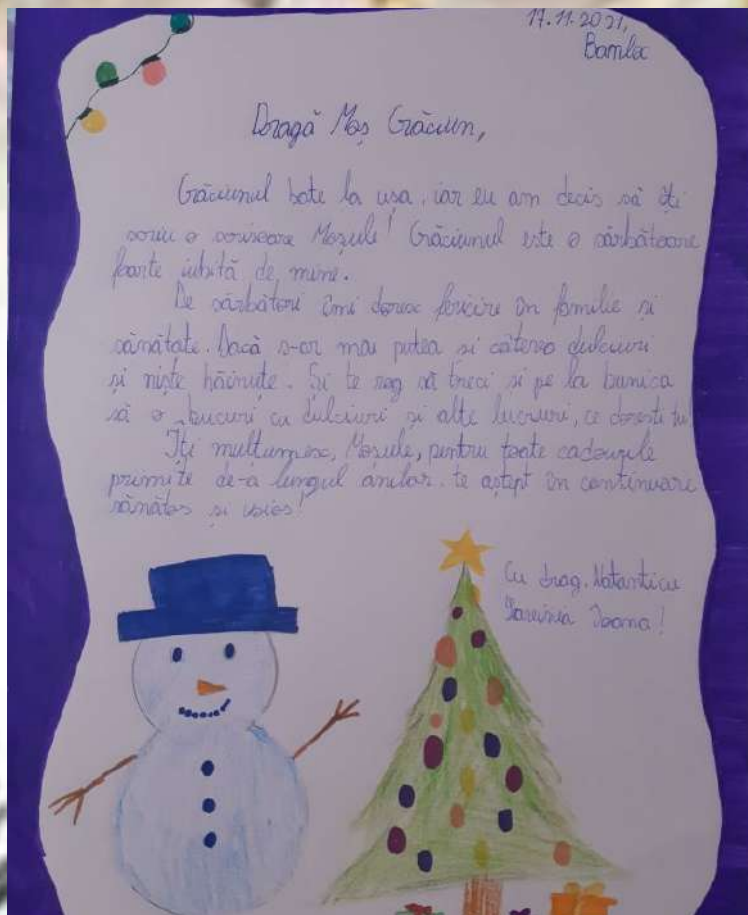 17.11.2021,
Bamloc
Dragă Moș Crăciun,
Crăciunul bate la ușa, iar eu am decis să îți
scriu o scrisoare Moșule! Crăciunul este o sărbătoare
foarte iubită de mine.
De sărbători îmi doresc fericire în familie și
sănătate. Dacă s-ar mai putea și câteva dulciuri
și niște hăinuțe. Și te rog să treci și pe la bunica
să o bucuri cu dulciuri și alte lucruri, ce dorești tu!
Îți mulțumesc, Moșule, pentru toate cadourile
primite de-a lungul anilor. te aștept în continuare
sănătos și voios!
Cu drag,
Ioana!